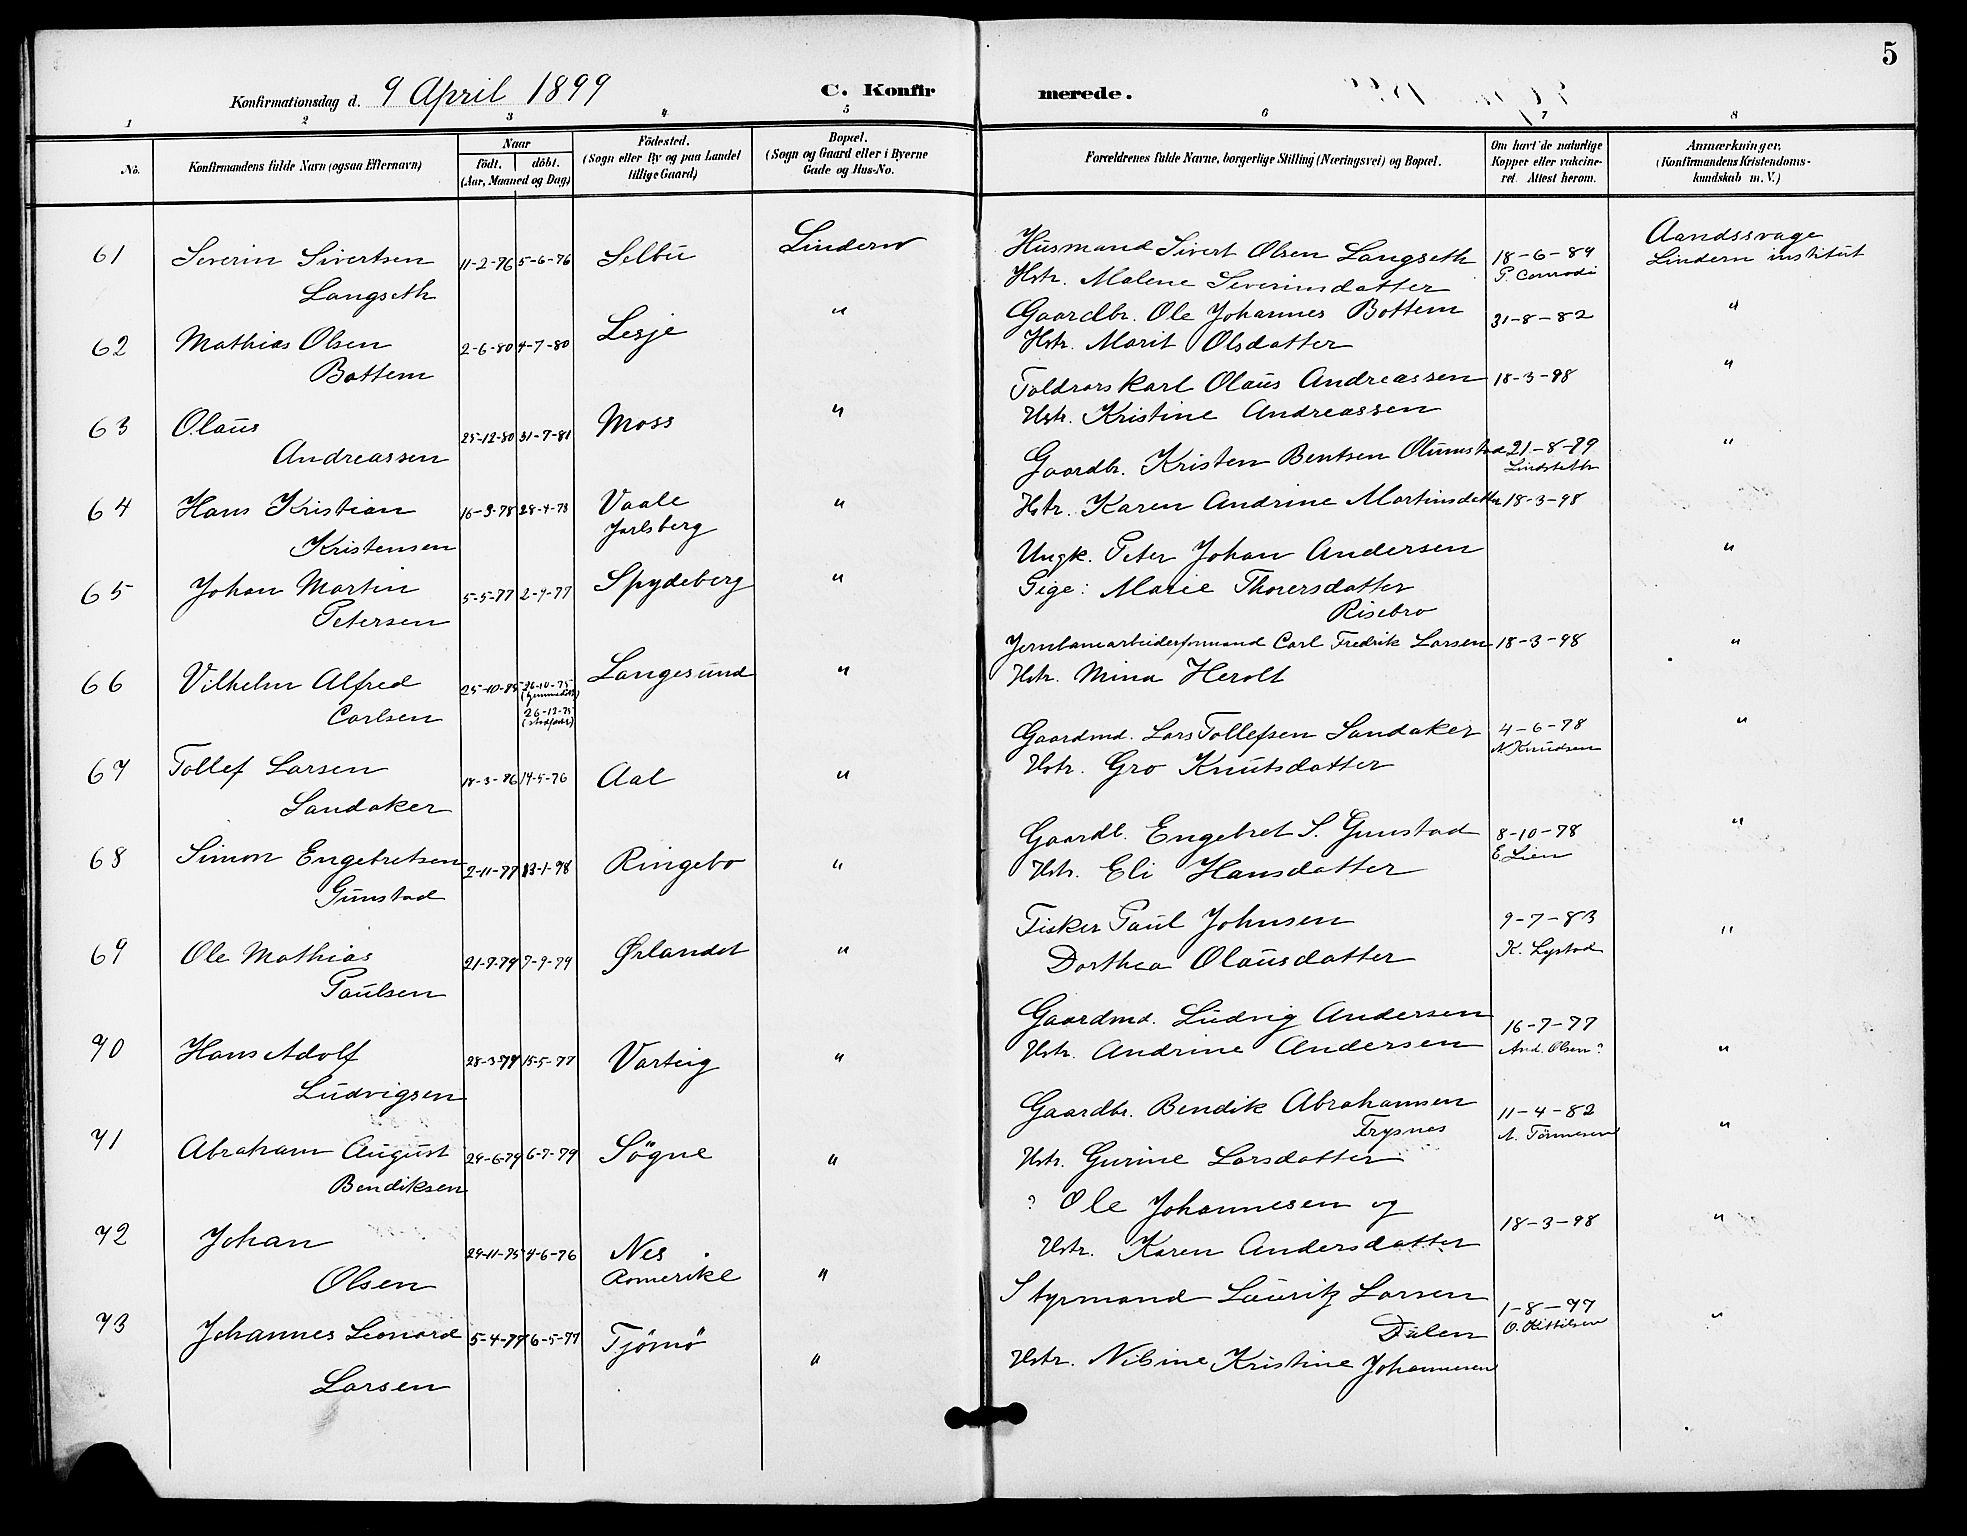 5
Konfirmationsdag d. 9 April 1899
C. Konfirmerede.
1 2 3 4 5 6 7 8
No.
Konfirmandens fulde Navn (ogsaa Efternavn)
Naar
födt. döbt.
(Aar, Maaned og Dag)
Födested.
(Sogn eller By og paa Landet
tillige Gaard)
Bopæl.
(Sogn og Gaard eller i Byerne
Gade og Hus-No.
Forældrenes fulde Navne, borgerlige Stilling (Næringsvei) og Bopæl.
Om havt de naturlige
Kopper eller vakcine-
ret. Attest herom.
Anmærkninger.
(Konfirmandens Kristendoms-
kundskab m. V.)
61 Severin Sivertsen 11-2-76 5-6-76 Selbu Lindern Husmand Sivert Olsen Langseth 18-6-89 Aandssvage
Langseth Hstr. Malene Severinsdatter P. Conradi Lindern institut
62 Mathias Olsen 2-6-80 4-7-80 Lesje " Gaardbr. Ole Johannes Bottem 31-8-82 "
Bottem Hstr. Marit Olsdatter
63 Olaus 25-12-80 31-7-81 Moss " Toldrorskarl Olaus Andreassen 18-3-98 "
Andreassen Hstr. Kristine Andreassen
64 Hans Kristian 16-3-78 28-4-78 Vaale " Gaardbr. Kristen Bentsen 21-8-79 "
Kristensen Jarlsberg Hstr. Karen Andrine Martinsdatter 18-3-98
65 Johan Martin 5-5-77 2-9-77 Spydeberg " Ungk. Peter Johan Andersen "
Petersen Pige: Marie Thorersdatter
Risebro
66 Vilhelm Alfred 25-10-75 26-10-75 Langesund " Jernbanearbeiderformand Carl Fredrik Larsen 18-3-98 "
Carlsen 26-12-75 Hstr. Mina Herolt
67 Tollef Larsen 18-3-76 14-5-76 Aal " Gaardmd. Lars Tollefsen Sandaker 4-6-78 "
Sandaker Hstr. Gro Knutsdatter N Knudsen
68 Simon Engebretsen 2-11-77 13-1-78 Ringebo " Gaardb. Engebret S. Gunstad 8-10-78 "
Gunstad Hstr. Eli Hansdatter E Lien
69 Ole Mathias 21-7-79 7-9-79 Ørlandet " Fisker Paul Johnsen 9-7-83 "
Paulsen Dorthea Olausdatter K. Lystad
70 Hans Adolf 28-3-77 15-5-77 Varteig " Gaardmd. Ludvig Andersen 16-7-77 "
Ludvigsen Hstr. Andrine Andersen And. Olsen?
71 Abraham August 29-6-79 6-7-79 Sögne " Gaardbr. Bendik Abrahamsen 11-4-82 "
Bendiksen Trysnes A. Tönnesen
Hstr. Gurine Larsdatter
72 Johan 29-11-75 4-6-76 Nes " ? Ole Johannesen og 18-3-98 "
Olsen Romerike Hstr. Karen Andersdatter
73 Johannes Leonard 5-4-77 6-5-77 Tjömö " Styrmand Lauritz Larsen 1-8-77 "
Larsen Dalen O. Kittilsen
Hstr. Nilsine Kristine Johannesen